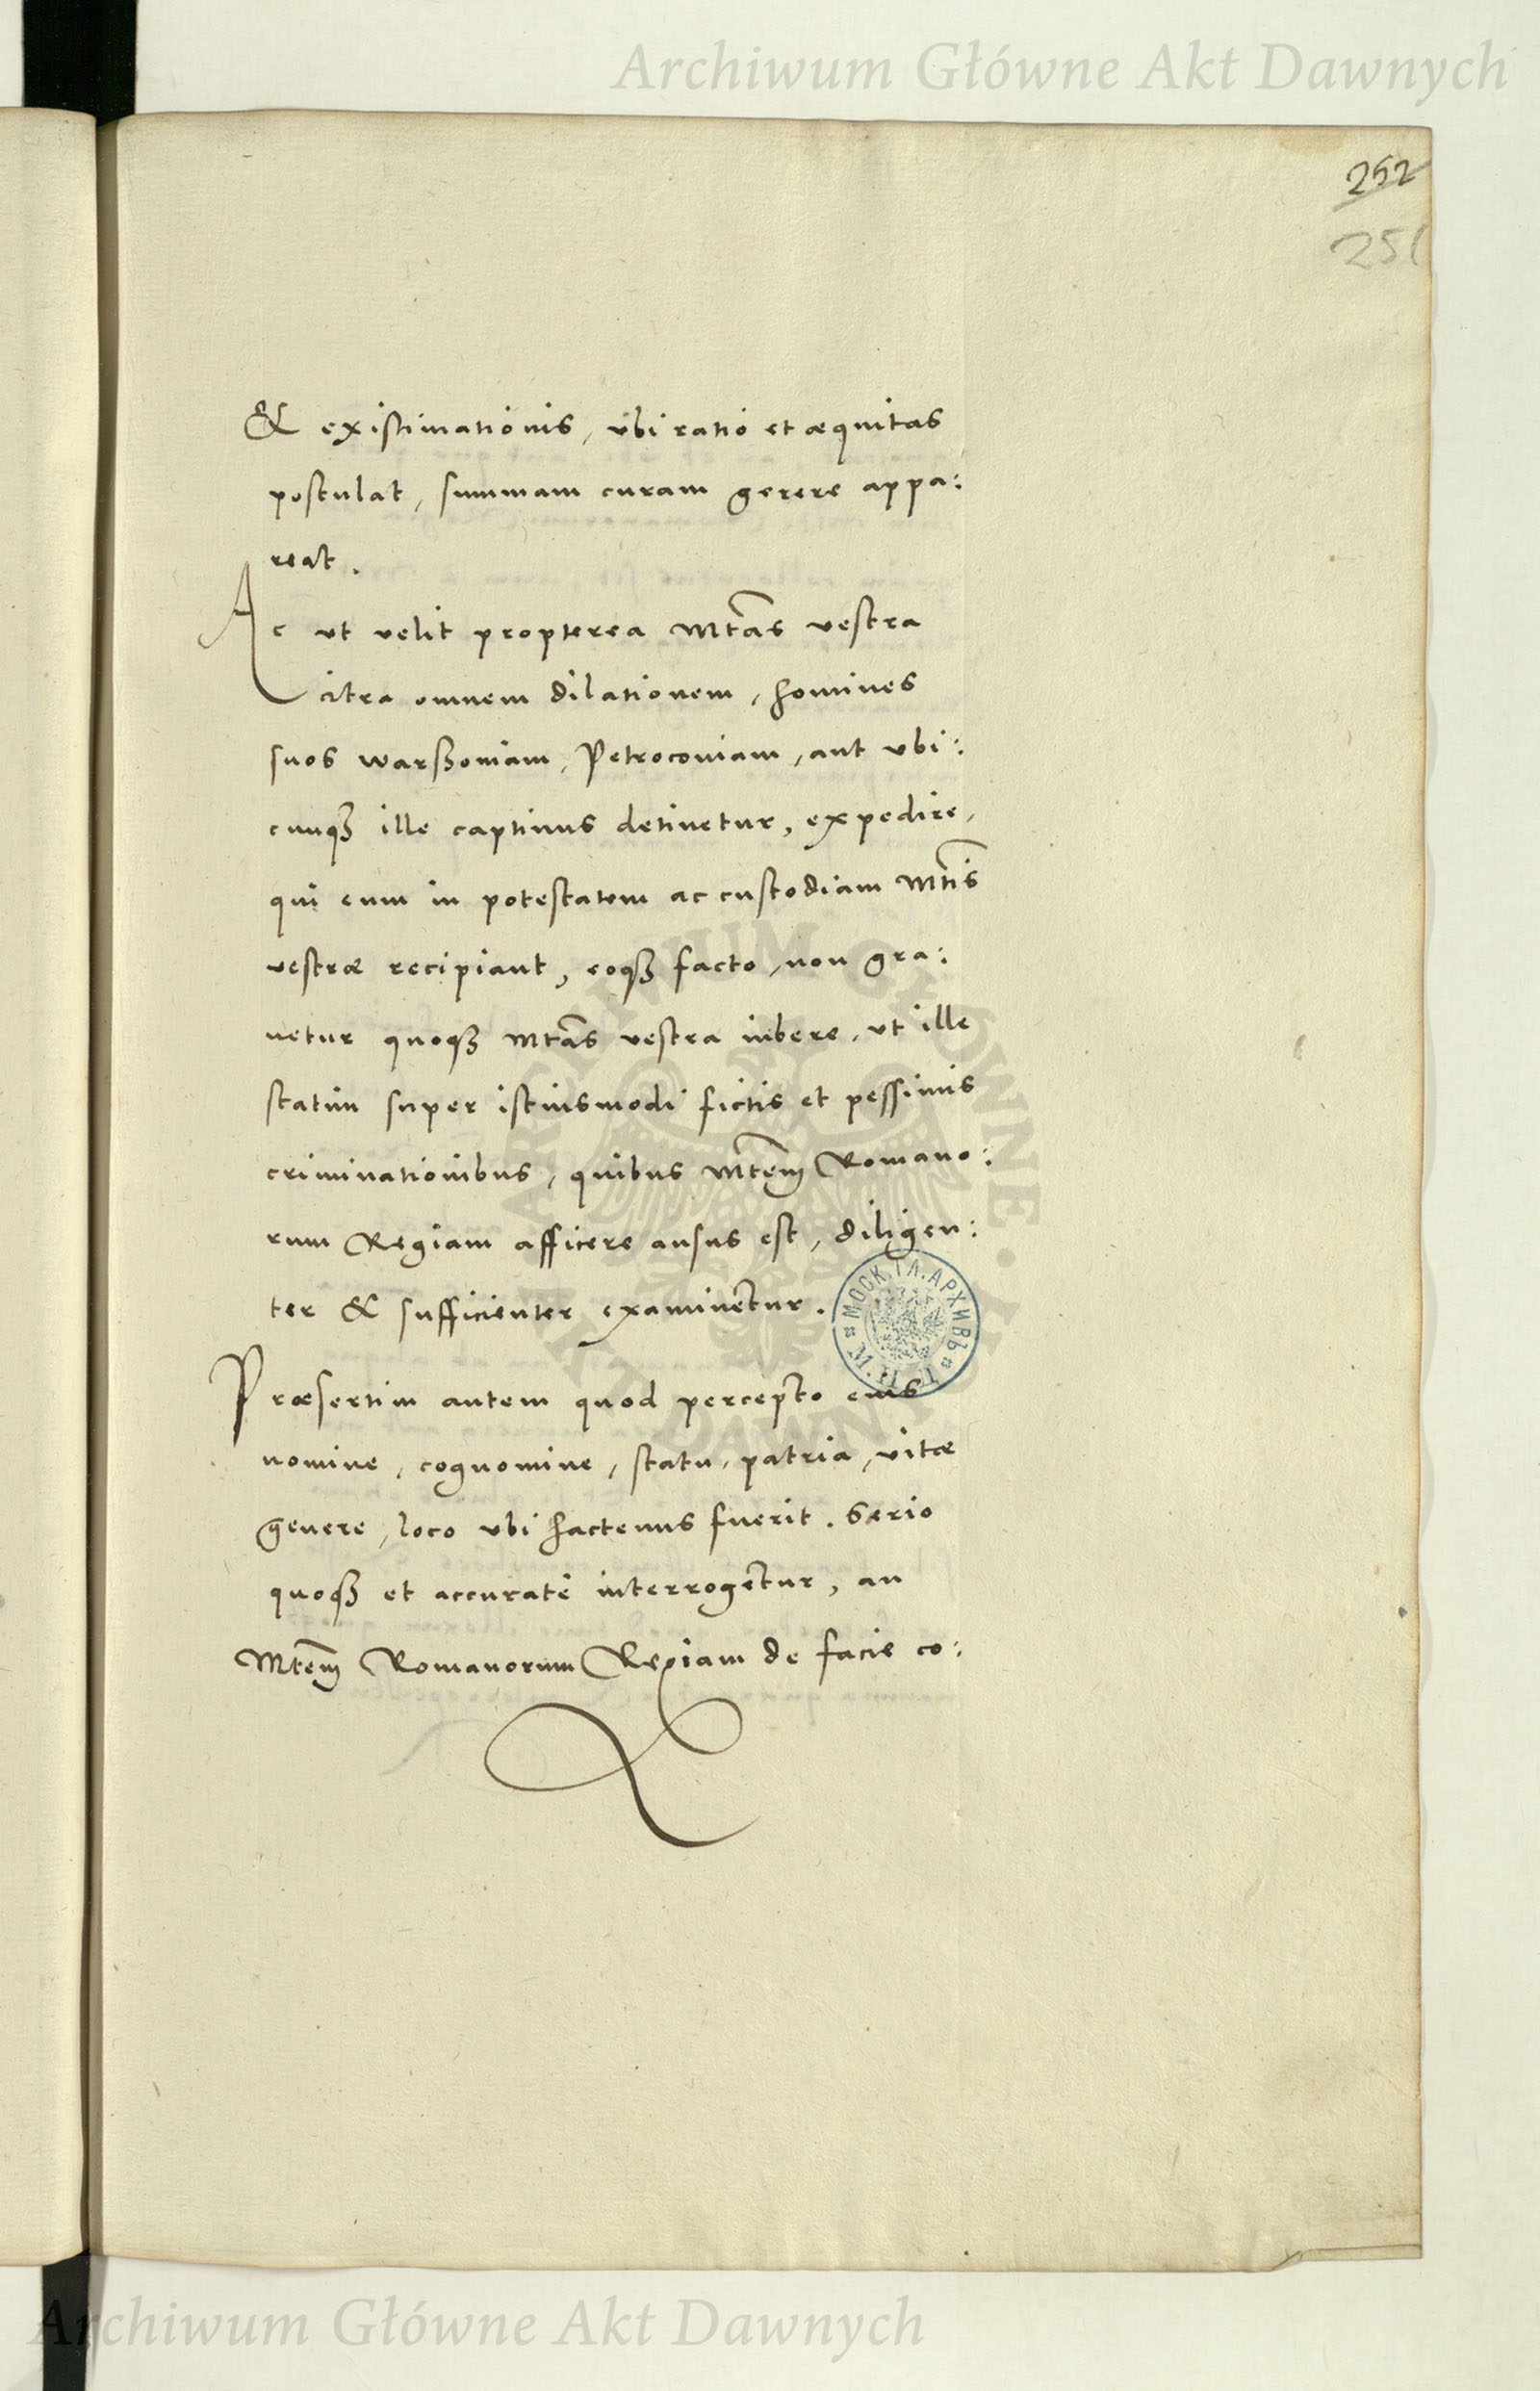 Archiwum Główne Akt Dawnych
252
251
& existimationis, ubi ratio et æquitas
postulat, summam curam gerere appa:
reat.
Ac ut velit propterea Mtas vestra
citra omnem dilationem, homines
suos Warßoviam, Petroconiam, aut ubi:
cunqꝫ ille captivus detinetur, expedire,
qui eum in potestatem ac custodiam Mtis
vestræ recipiant, eoqꝫ facto, non gra:
vetur quoqꝫ Mtas vestra iubere, ut ille
statim super istiusmodi fictis et pessimis
criminationibus, quibus Mtem Romano:
rum Regiam afficere ausus est, diligen:
ter & sufficienter examinetur.
Præsertim autem quod percepto eius
nomine, cognomine, statu, patria, vitæ
genere, loco ubi hactenus fuerit. Serio
quoqꝫ et accurate interrogetur, an
Mtem Romanorum Regiam de facie co:
МОСК. ГЛ. АРХИВЪ
ARCHIWUM GŁÓWNE AKT DAWNYCH
Archiwum Główne Akt Dawnych